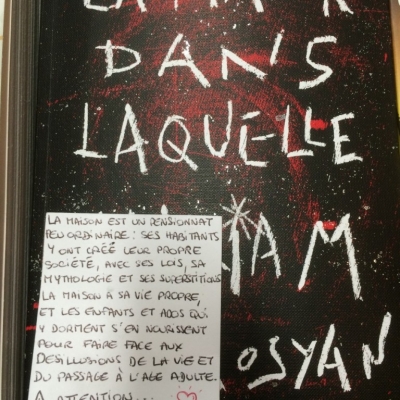 DANS
LAQUELLE
OSYAN
LA MAISON EST UN PENSIONNAT
PEU ORDINAIRE : SES HABITANTS
Y ONT CRÉÉ LEUR PROPRE
SOCIÉTÉ, AVEC SES LOIS, SA
MYTHOLOGIE ET SES SUPERSTITIONS
LA MAISON À SA VIE PROPRE,
ET LES ENFANTS ET ADOS QUI
Y DORMENT S'EN NOURISSENT
POUR FAIRE FACE AUX
DESILLUSIONS DE LA VIE ET
DU PASSAGE À L'AGE ADULTE.
ATTENTION...